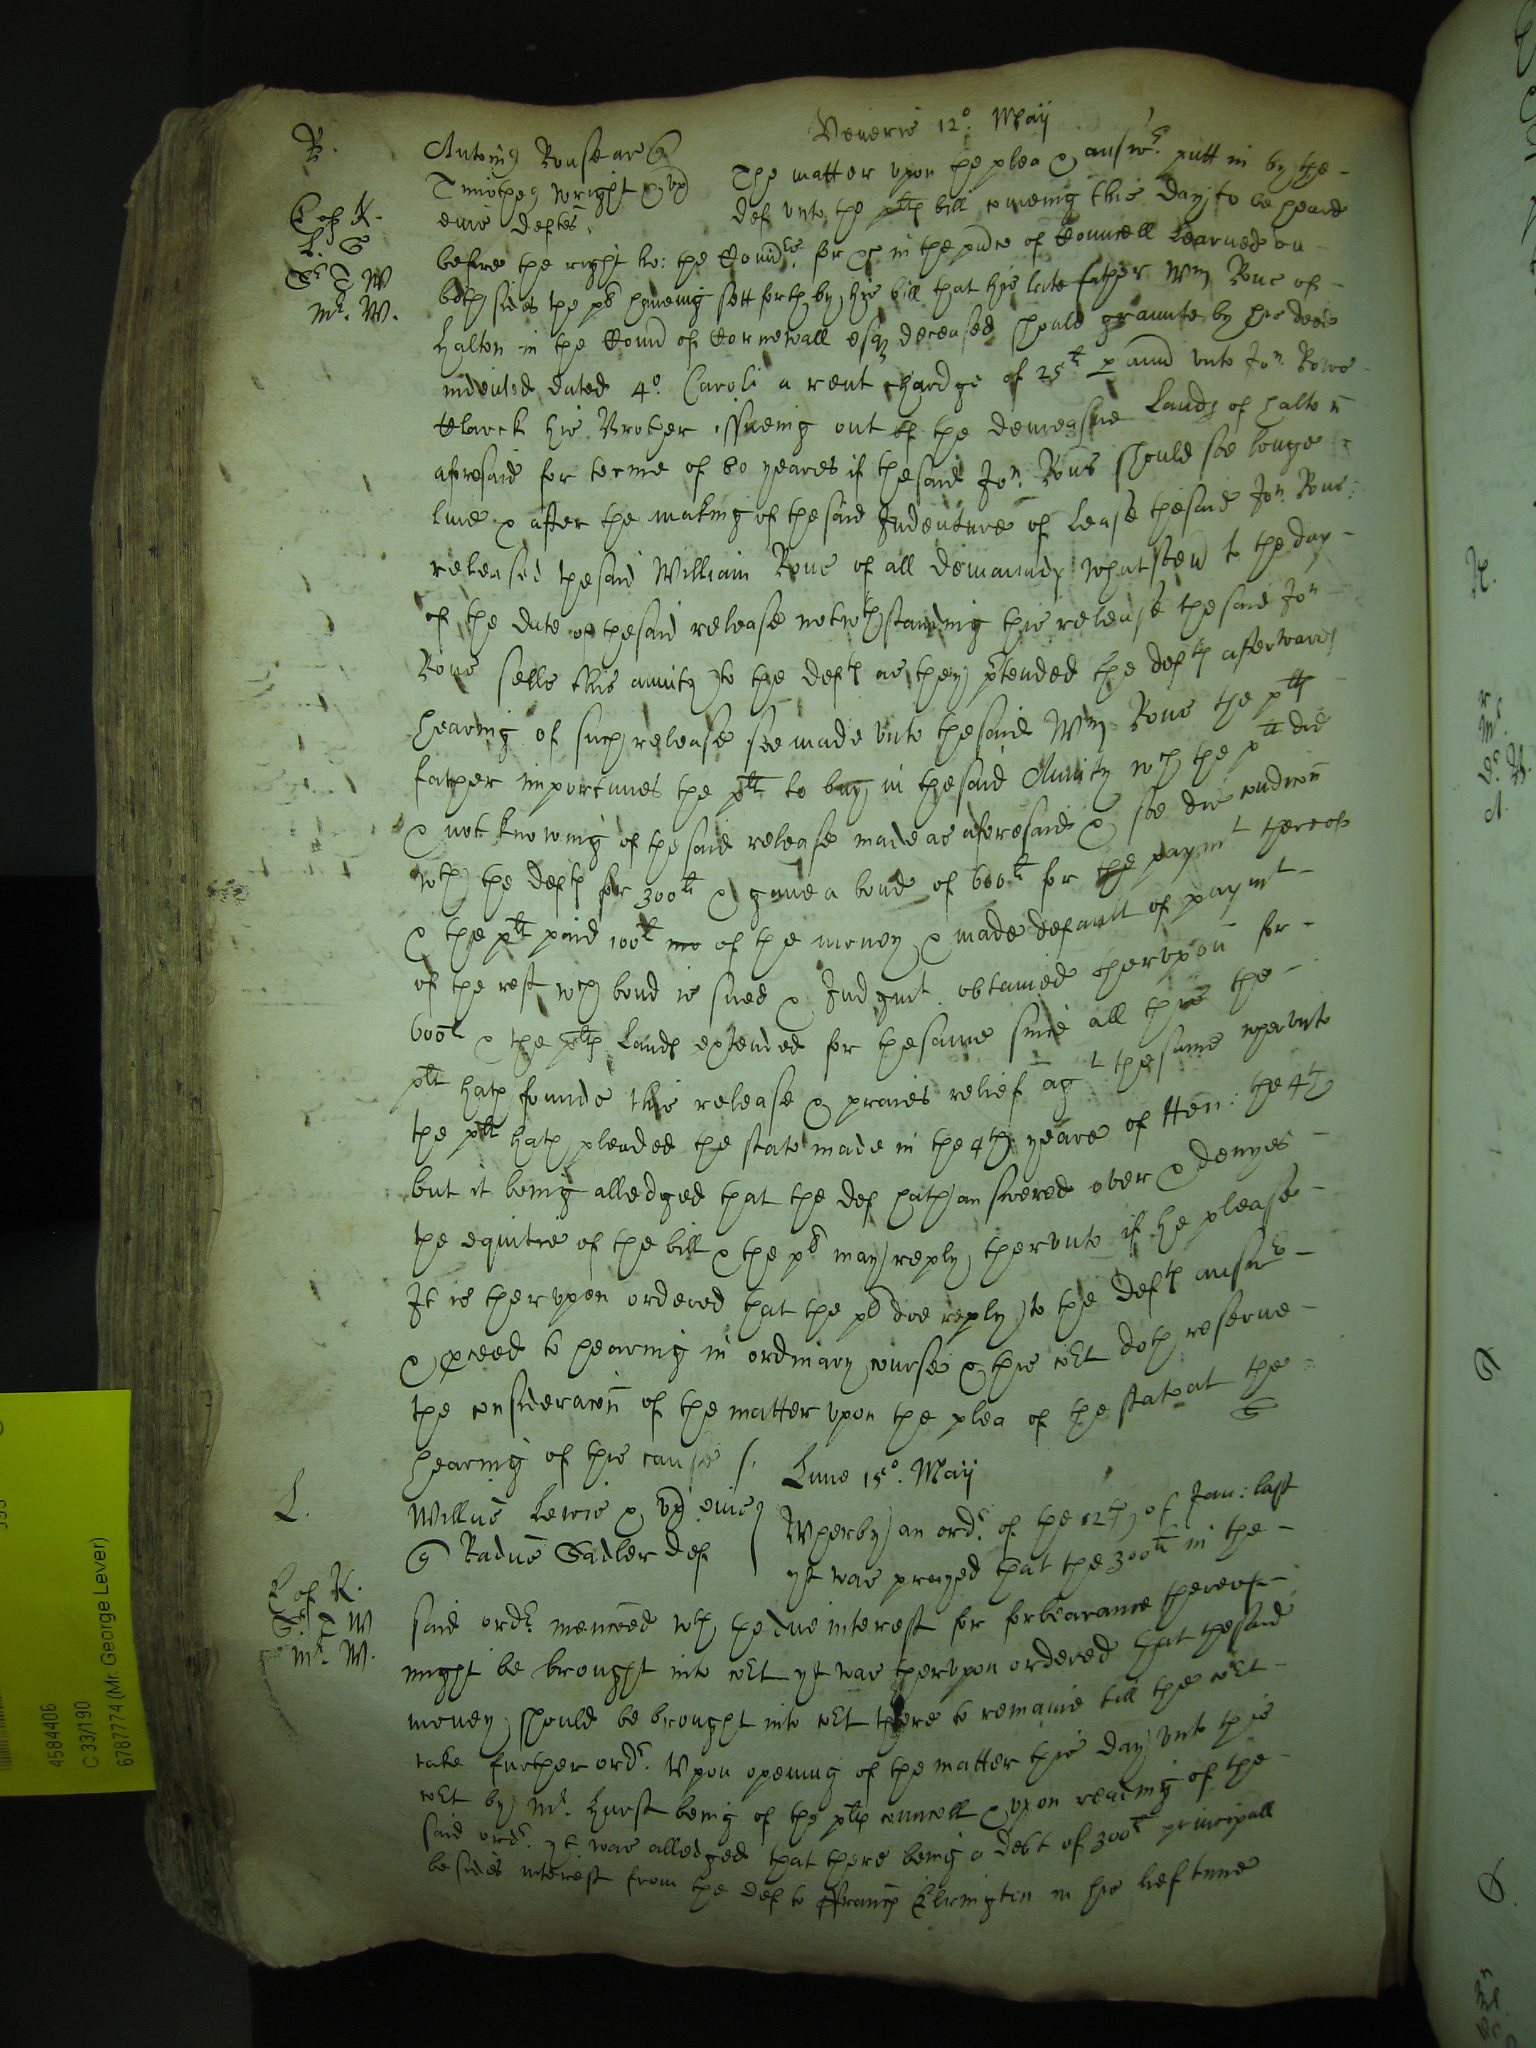 Veneris 12o. Maij
R.
Antonius Rous ar q
Timotheus Wright & ux
eius deftes.
C of K.
L. C
Sr. T W
Mr. W.
The matter upon the plea & answr. putt in by the
def unto the plts bill comeing this day to be heard
before the right ho: the Comrs. for &c in the pnce of Councell learned on
both sides the pt haveing sett forth by his bill that his late father Wm Rous of
Halton in the Count of Cornewall esqr deceased should graunte by his deede
indented dated 4o. Caroli a rent chardge of 25li p annu unto Jon. Rows
Clarck his Brother issueing out of the demeasne Lands of Halton
aforesaid for terme of 60 yeares if the said Jon. Rous should soe longe
live & after the making of the said Indenture of Lease the said Jon. Rous
released the said William Rous of all demaunds whatsoeu to the day
of the date of the said release notwthstanding this release the said Jon
Rous sells this anuity to the defts as they ptended the defts afterwards
hearing of such release soe made unto the said Wm Rous the plts
father importunes the plt to buy in the said Anuity wch the plt did
& not knowing of the said release made as aforesaid & soe did condicon
wth the defts for 300li & gave a bond of 600li for the paymt thereof
& the plt paid 100li mo of the money & made default of paymt
of the rest wch bond is sued & Judgmt. obtained therupon for
600li & the plts Lands extended for the same since all this the
plt hath founde this release & praies relief agt the same wherunto
the plt hath pleaded the state made in the 4th yeare of Hen: the 4th
but it being alledged that the def hath answered over & denyes
the equitie of the bill & the pt may reply therunto if he please
It is therupon ordered that the pt doe reply to the defts answr
& pceed to hearing in ordinary course & this cort doth reserve
the consideracon of the matter upon the plea of the state at the
hearing of this cause /.
Lune 15o. Maij
L.
Willus Lewis & ux eius
q Radus Sadler def
L of K.
Sr. T W
Mr. W.
Wherby an ordr. of the 12th of Jan: last
yt was prayed that the 300li in the
said ordr. menconed wth the due interest for forbearance thereof
might be brought into cort yt was therupon ordered that the said
money should be brought into cort there to remaine till the cort
take further ordr. Upon opening of the matter this day unto this
cort by Mr. Hurst being of the plts councell & upon reading of the
said ordr. yt was alledged that there being a debt of 300li principall
besides interest from the def to Francis Elrington in his lief time
4584406
C 33/190
6787774 (Mr. George Lever)